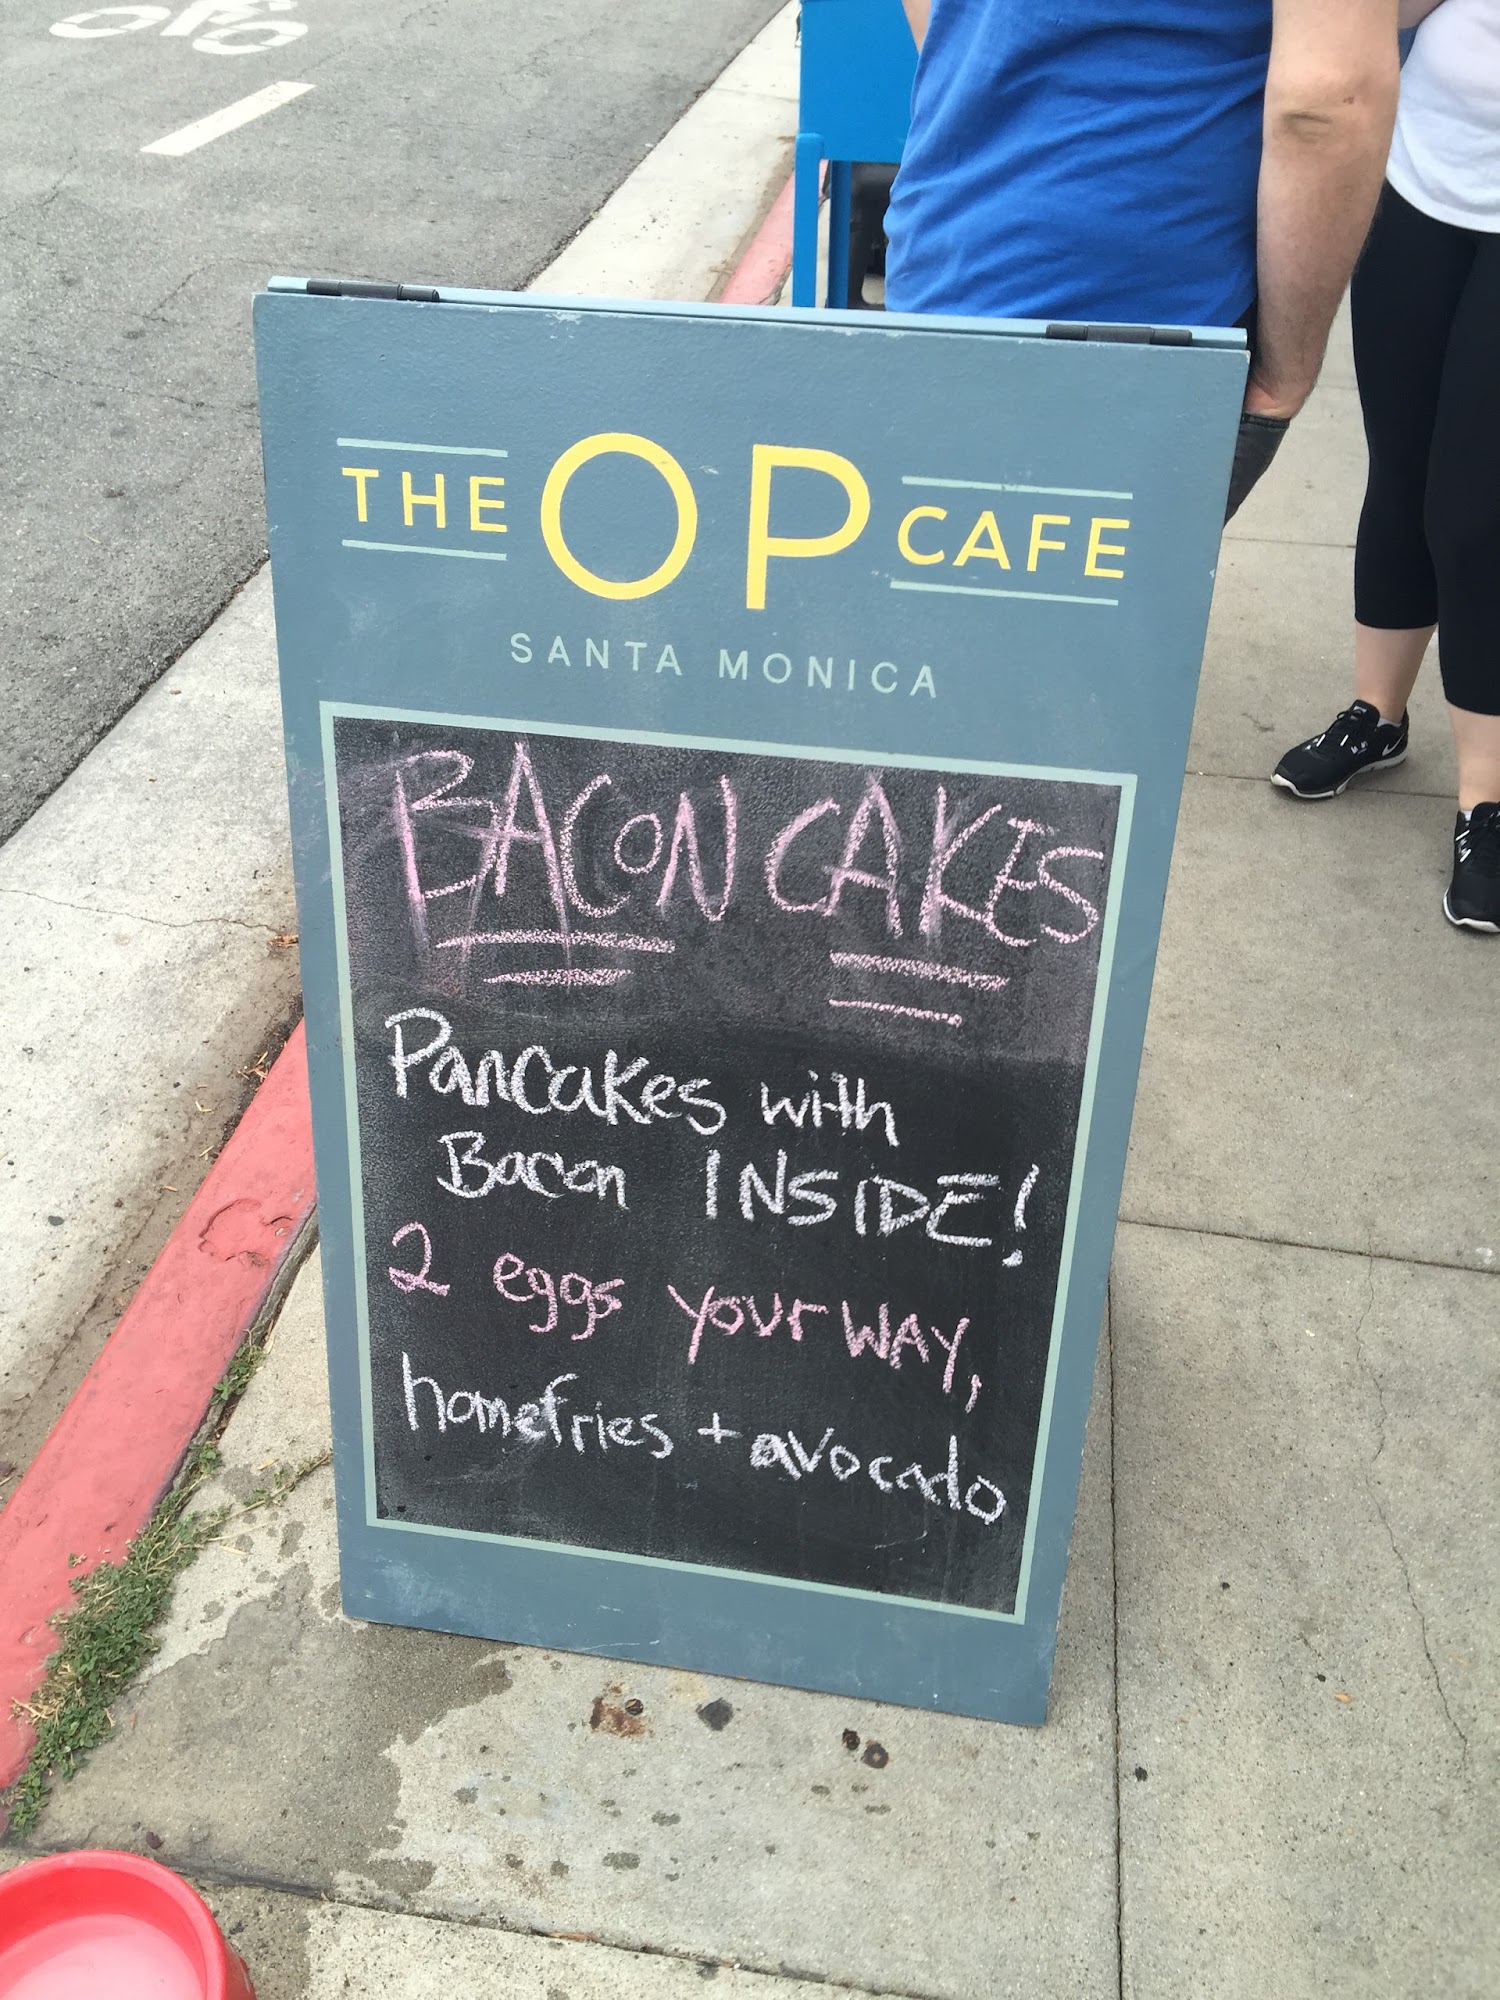 THE OP CAFE
SANTA MONICA
BACON CAKES
Pancakes with
Bacon INSIDE!
2 eggs your WAY,
homefries + avocado